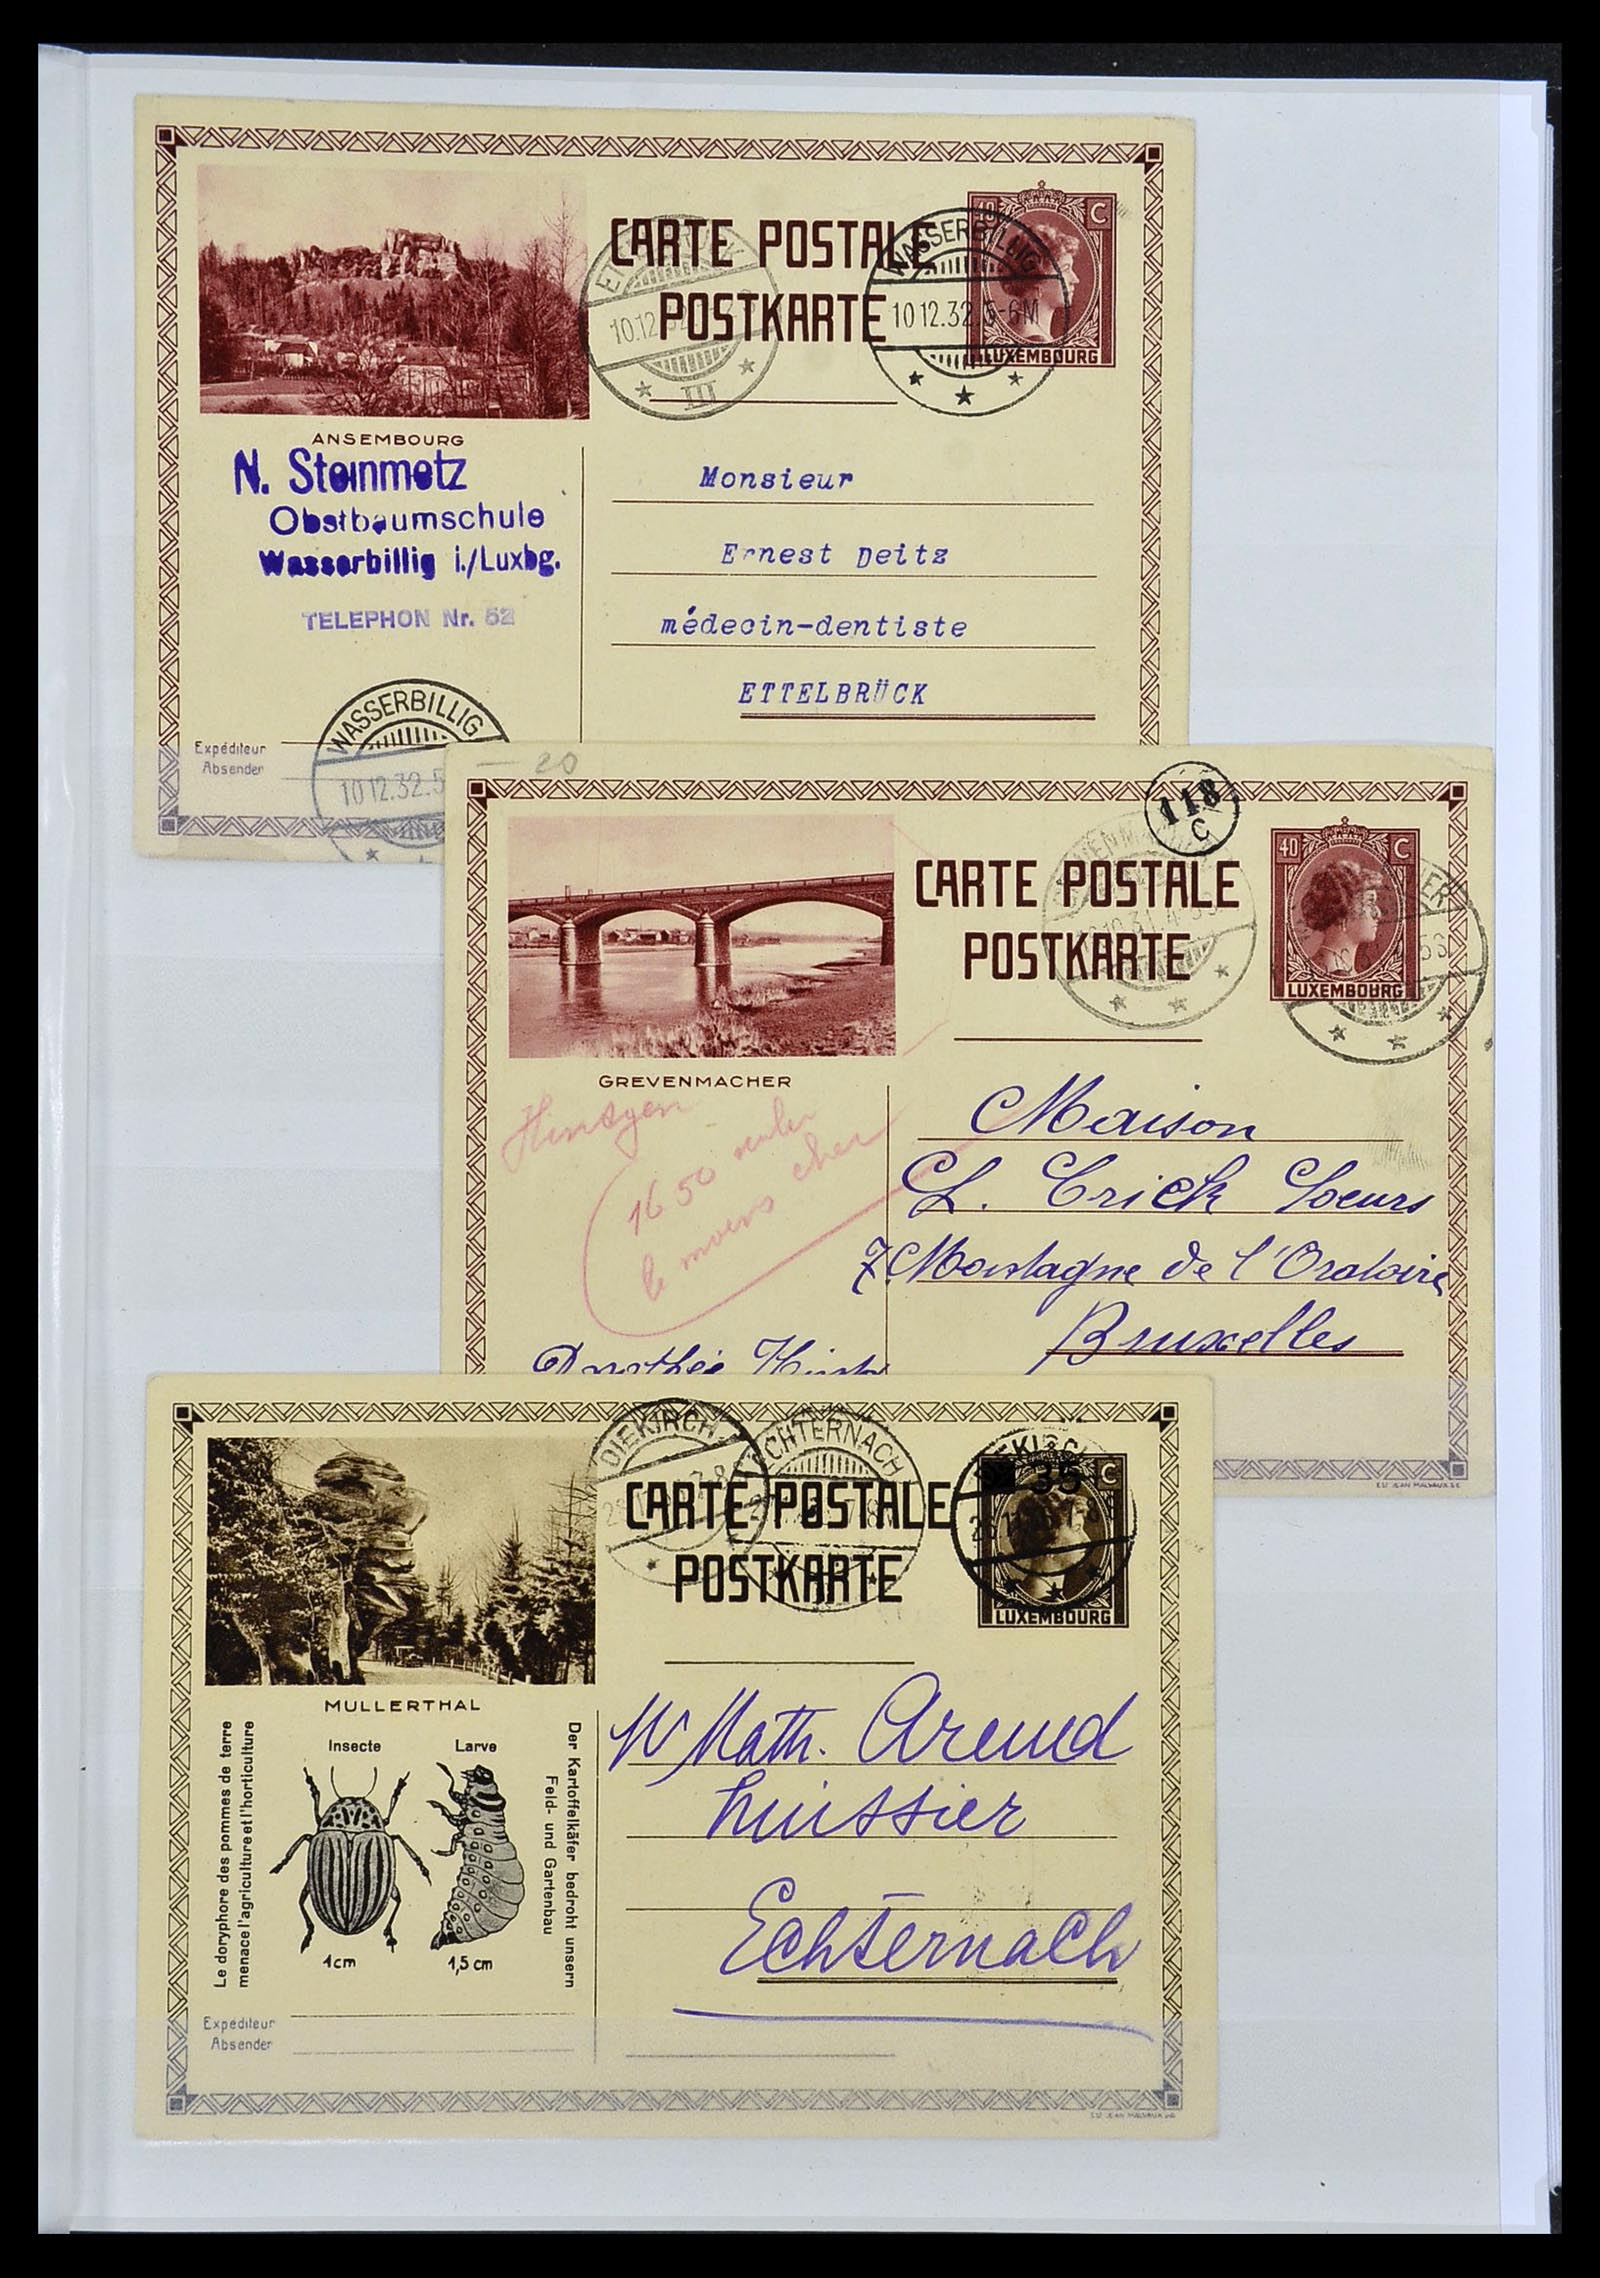 CARTE POSTALE
POSTKARTE
40 C
LUXEMBOURG
WASSERBILLIG
10.12.32. 5-6M
10.12.32
III
ANSEMBOURG
N. Steinmetz
Obstbaumschule
Wasserbillig i./Luxbg.
TELEPHON Nr. 52
Monsieur
Ernest Deitz
médecin-dentiste
ETTELBRÜCK
WASSERBILLIG
10.12.32.5
Expéditeur
Absender
— 20
118
C
CARTE POSTALE
POSTKARTE
40 C
LUXEMBOURG
GREVENMACHER
1650
le moins cher
Maison
L. Crick Soeurs
7. Montagne de l'Oratoire
Bruxelles
Dorothée
Ets JEAN MALVAUX. S.E.
DIEKIRCH
ECHTERNACH
CARTE POSTALE
POSTKARTE
35 C
LUXEMBOURG
MULLERTHAL
Le doryphore des pommes de terre
menace l'agriculture et l'horticulture
Insecte
1cm
Larve
1,5 cm
Der Kartoffelkäfer bedroht unsern
Feld- und Gartenbau
Math. Arend
huissier
Echternach
Expéditeur
Absender